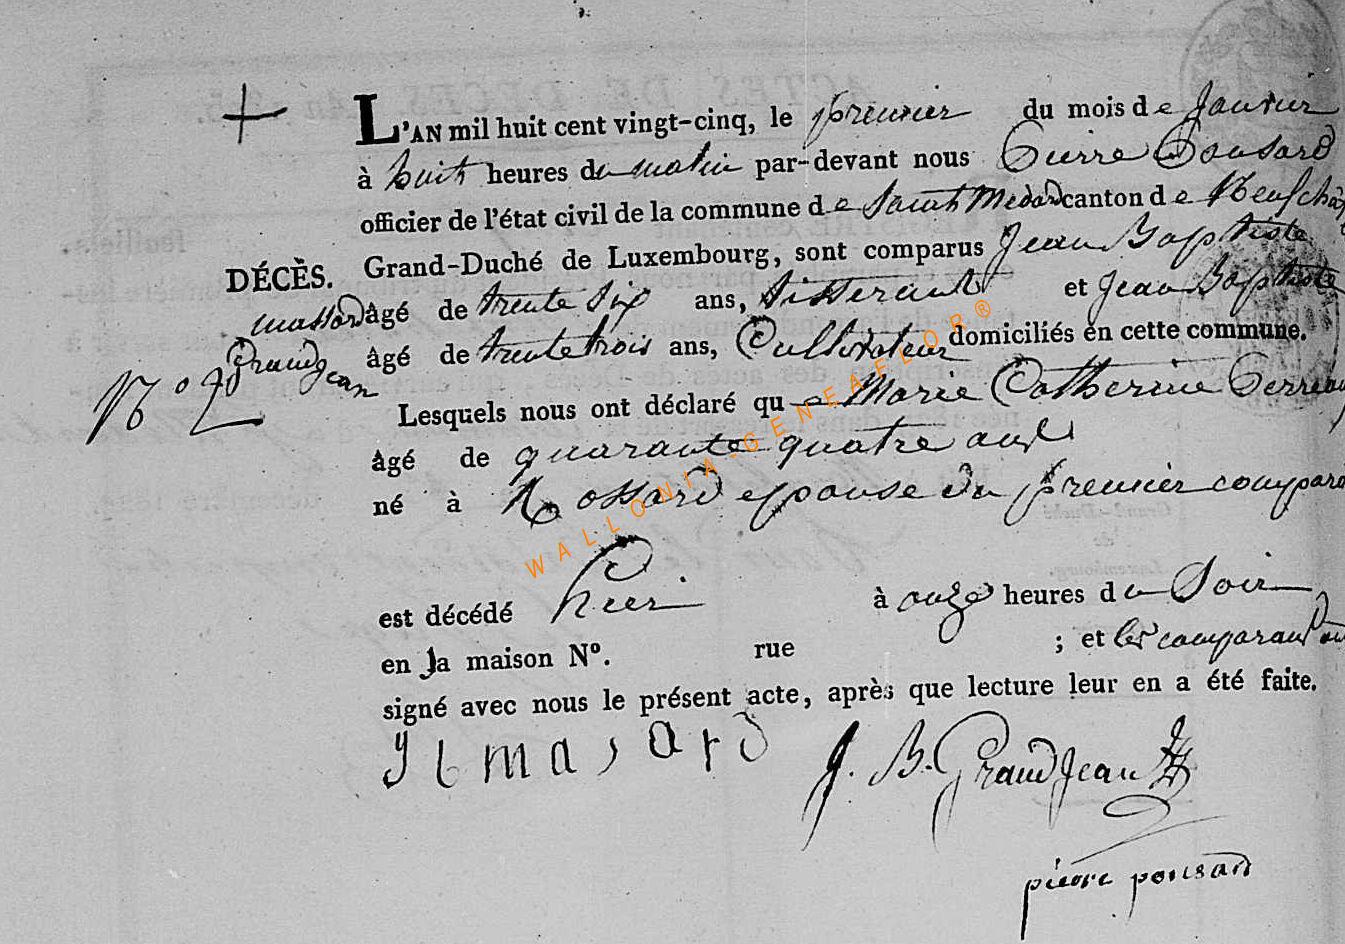 L'AN mil huit cent vingt-cinq, le premier du mois de Janvier
à huit heures du matin par-devant nous Pierre Ponsard
officier de l'état civil de la commune de Saint Medard canton de Neufchâ
Grand-Duché de Luxembourg, sont comparus Jean Baptiste
DÉCÈS.
massard âgé de trente Six ans, tisserant et Jean Baptiste
Grandjean âgé de trente trois ans, Cultivateur domiciliés en cette commune.
N° 2
Lesquels nous ont déclaré que Marie Catherine
âgé de quarante quatre ans
né à Rossard epouse du premier comparé
est décédé hier à onze heures du Soir
en la maison N°. rue ; et les comparans on
signé avec nous le présent acte, après que lecture leur en a été faite.
masard J. B. GrandJean
pierre ponsard
WALLONIA-GENEAFLOR®